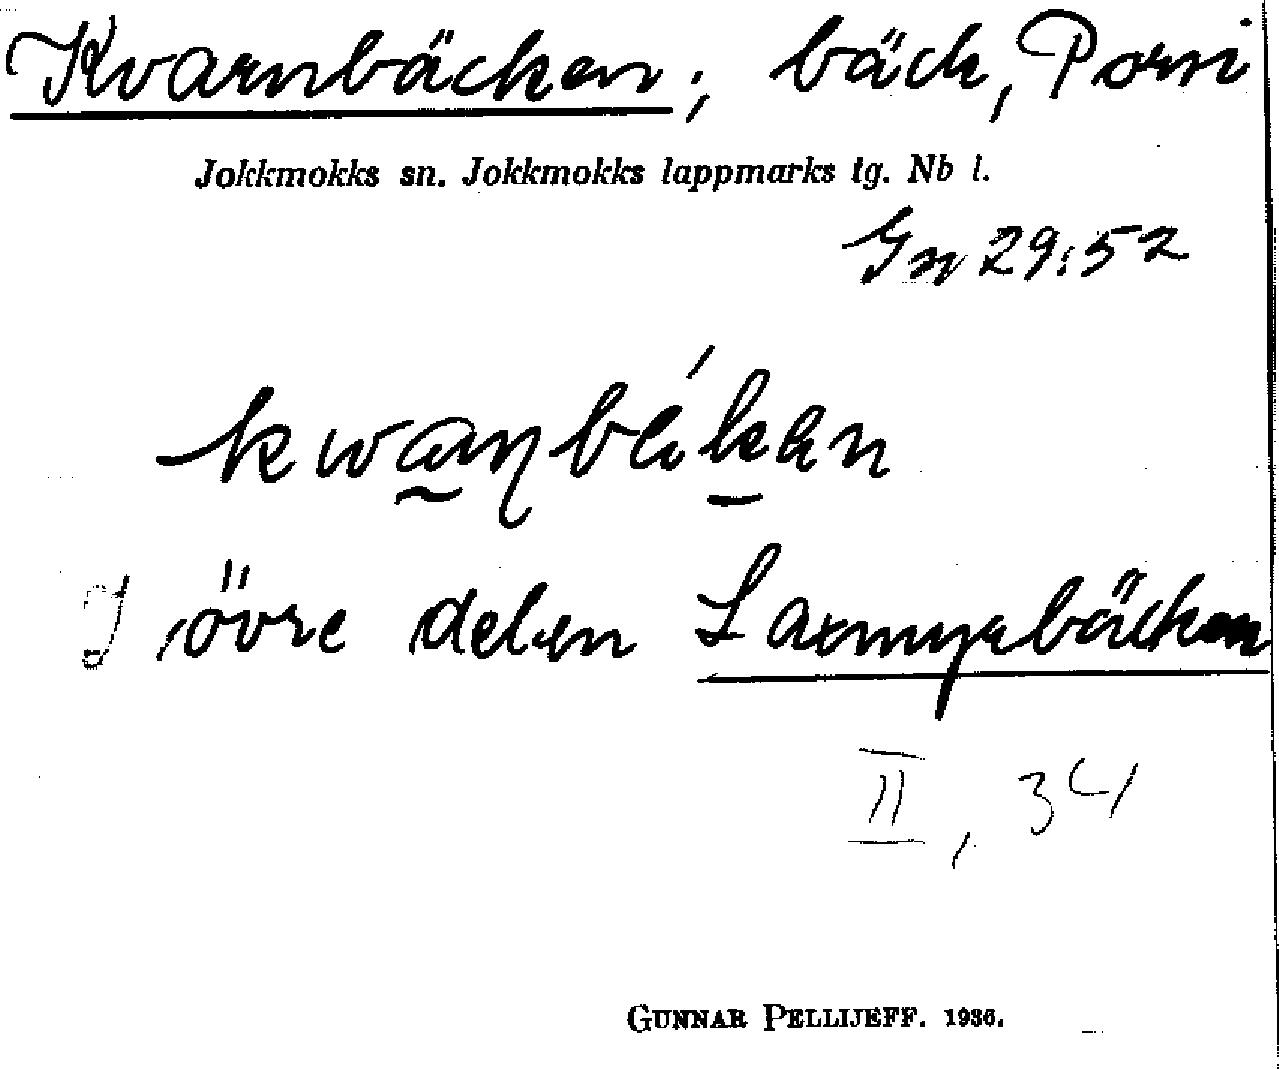 Kvarnbäcken; bäck, Porsi
Jokkmokks sn. Jokkmokks lappmarks tg. Nb l.
Gn 29:52
I övre delen Laxmyrbäcken
II, 34
GUNNAR PELLIJEFF. 1936.